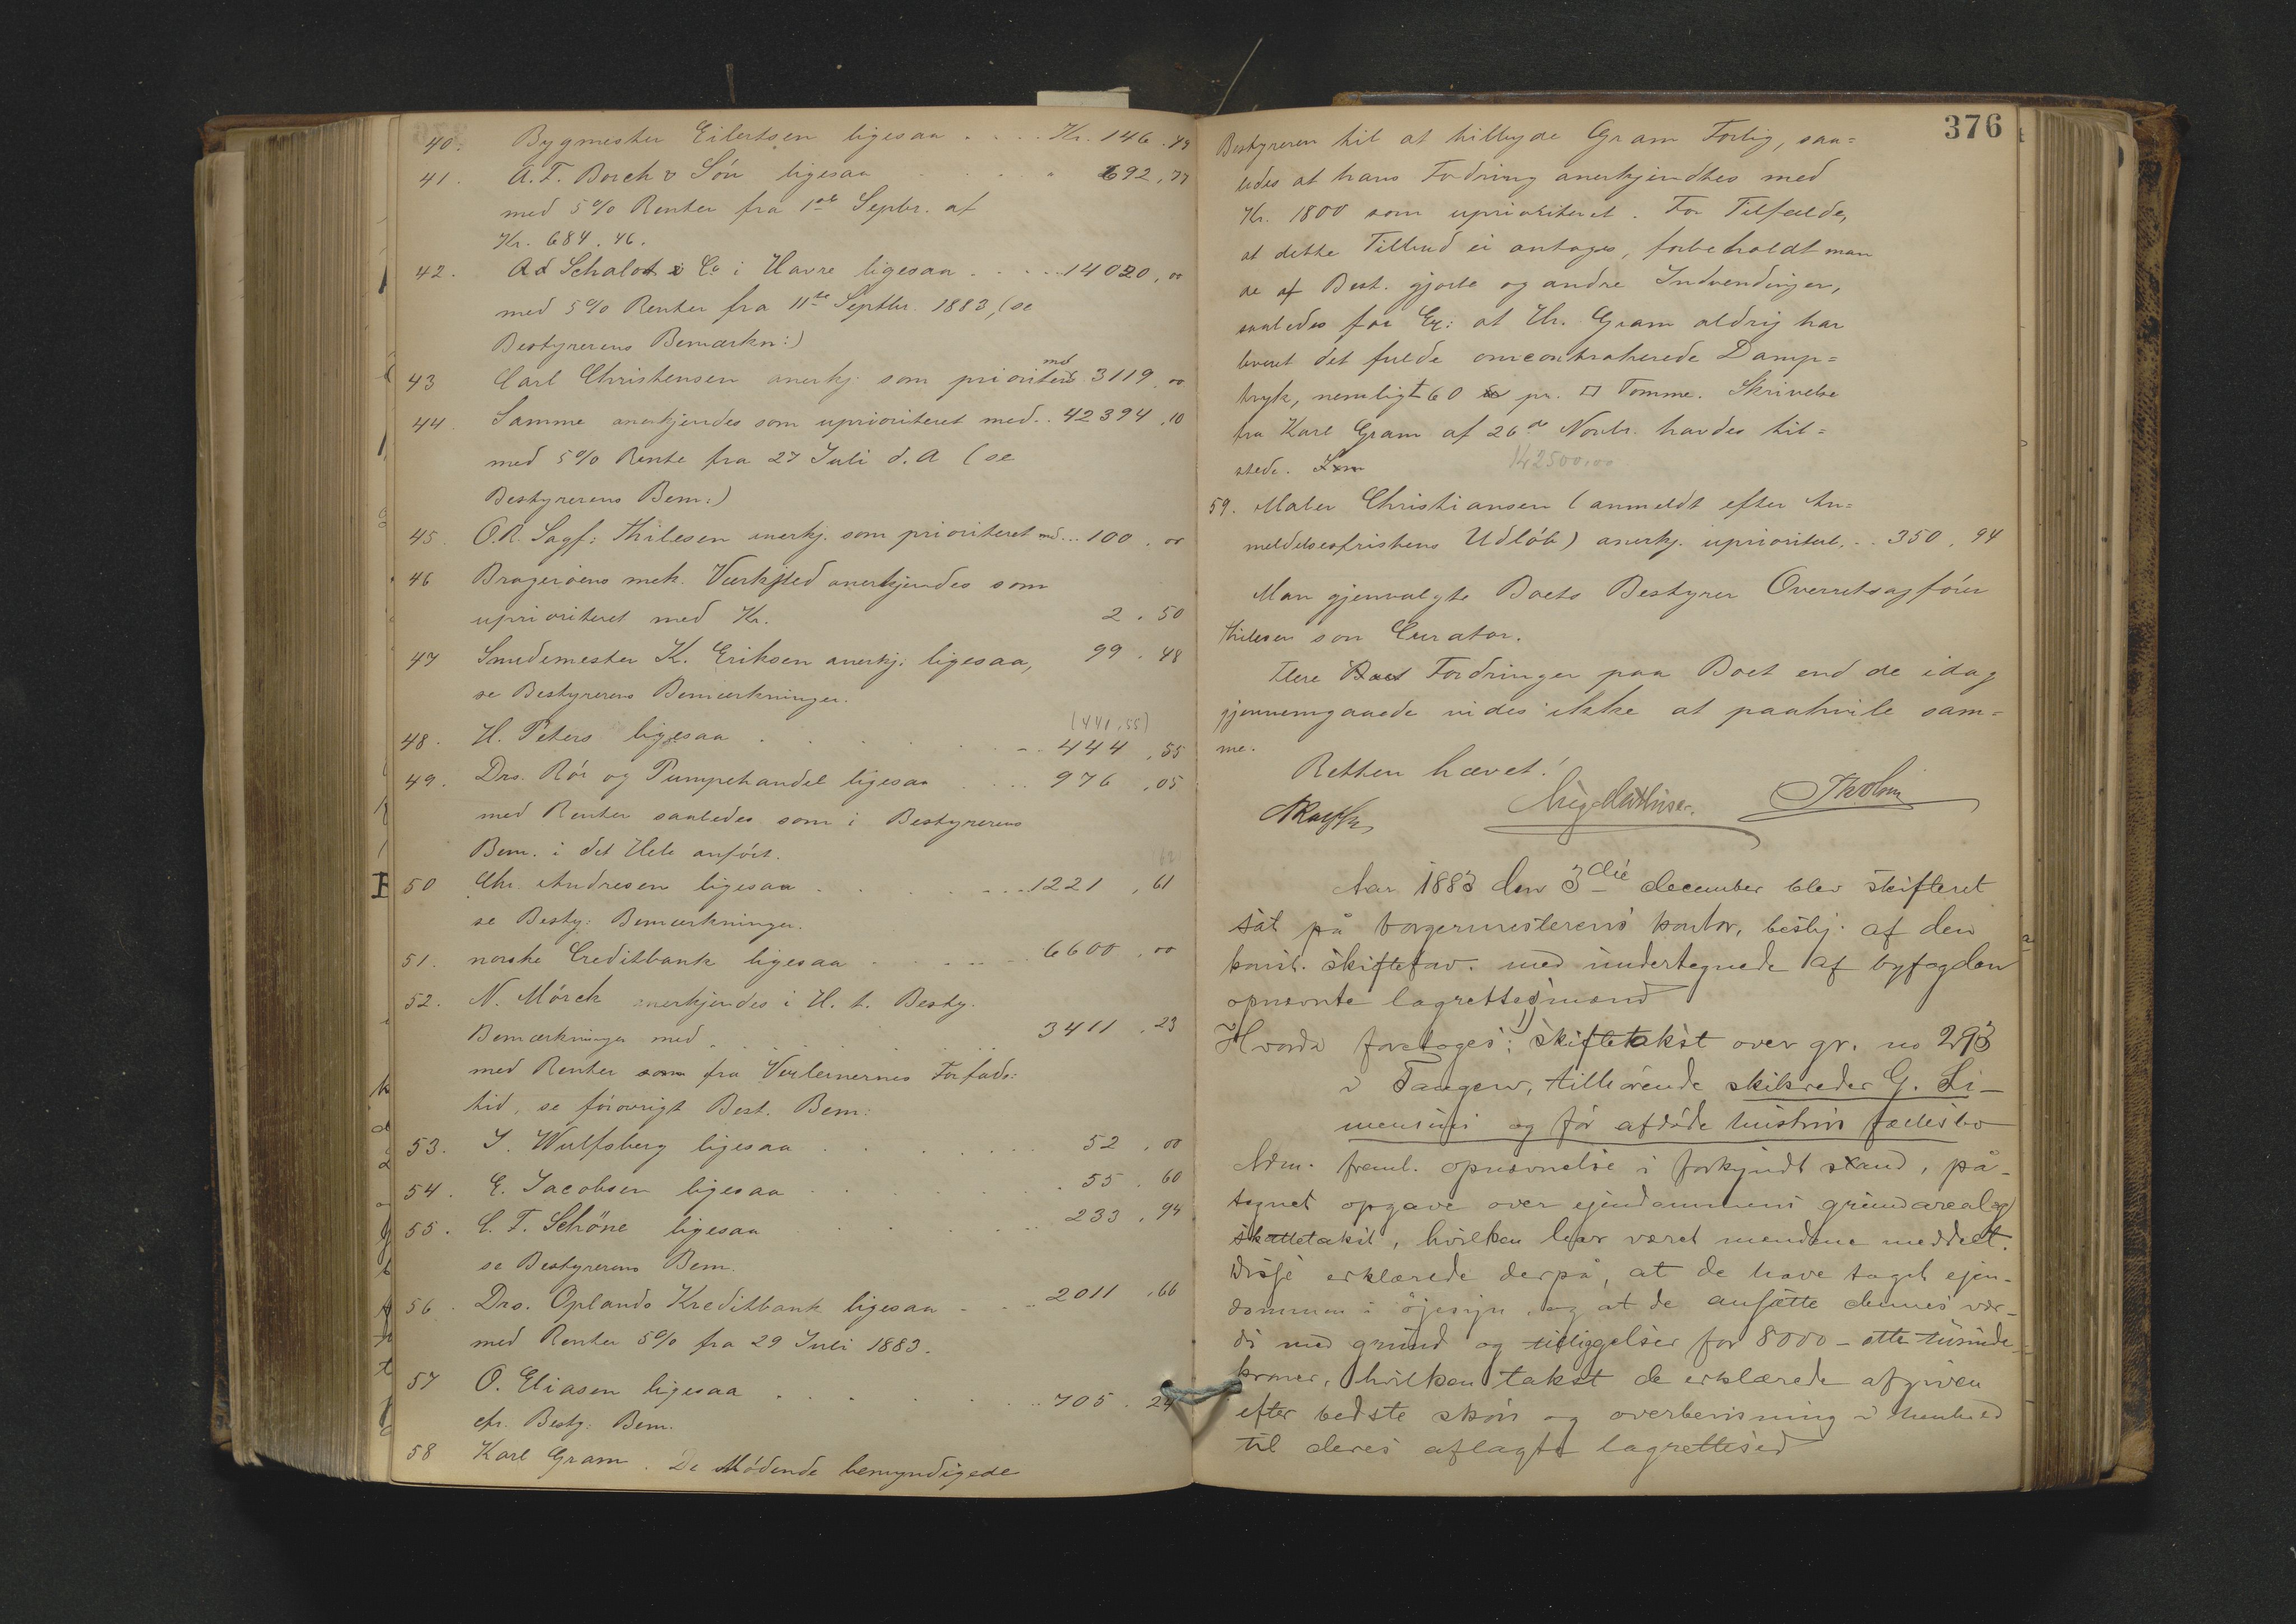 40. Bygmester Eilertsen ligesaa .... Kr. 146.
41. A. T. Borch & Sön ligesaa " 692,77
med 5% Renter fra 1ste Septbr. af
Kr. 684.46.
42. Ad Schalot & Co i Havre ligesaa ..... 14020,00
med 5% Renter fra 11te Septbr. 1883, (se
Bestyrerens Bemærkn:)
43 Carl Christensen anerkj. som prioritert med 3119.00
44. Samme anerkjendes som uprioriteret med.. 42394,10
med 5% Rente fra 27 Juli d. A (se
Bestyrerens Bem:)
45. O.R. Sagf: Thilesen anerkj. som prioriteret md... 100.00
46 Brageröens mek. Værksted anerkjendes som
uprioriteret med Kr. 2.50
47 Smedemester K. Eriksen anerkj. ligesaa, 99.48
se Bestyrerens Bemærkninger.
(441,55)
48. H. Peters ligesaa ... 444,55
49. Drs. Rör og Pumpehandel ligesaa .... 976,05
med Renter saaledes som i Bestyrerens
Bem. i det Hele anfört.
50 Chr. Andresen ligesaa .... 1221,61
se Besty: Bemærkninger.
51. norske Creditbank ligesaa ..... 6600,00
52. N. Mörch anerkjendes i H. t. Besty.
Bemærkninger med ..... 3411.23
med Renter som fra Vexlernernes Forfalds:
tid, se forövrigt Best. Bem:
53. J. Wulfsberg ligesaa ..... 52,00
54. E. Jacobsen ligesaa .... 55.60
55. C. F. Schöne ligesaa .... 233,94
se Bestyrerens Bem.
56. Drs. Oplands Kreditbank ligesaa .... 2011,66
med Renter 5% fra 29 Juli 1883.
57 O. Eliasen ligesaa ..... 705.24
cfr. Besty: Bem.
58 Karl Gram. De Mödende bemyndigede
376
Bestyreren til at tilbyde Gram Forlig, saa=
ledes at hans Fordring anerkjendtes med
Kr. 1800 som uprioriteret. For Tilfælde,
at dette Tilbud ei antages, forbeholdt man
de af Best. gjorte og andre Indvendinger,
saaledes for Ex: at Hr. Gram aldrig har
leveret det fulde omcontraherede Damp=
tryk, nemligt 60 pr. □ Tomme. Skrivelse
fra Karl Gram af 26de Novbr. havdes til=
stede.
142500,00
59. Maler Christiansen (anmeldt efter An=
meldelsesfristens Udlöb) anerkj. uprioritert. .. 350,94
Man gjenvalgte Boets Bestyrer Overretssagförer
Thilesen som Curator.
Flere Boet Fordringer paa Boet end de idag
gjennemgaaede vides ikke at paahvile sam=
me.
Retten hævet.
Aar 1883 den 3die december blev skifteret
sat på borgermesterens kontor, bestyj. af den
konst. skiftefor. med undertegnede af byfogden
opnævnte lagrettesmænd
Hvorda foretoges: skiftetakst over gr. no 293
i Tangen, tilhörende skibsreder G. Si-
mensens og för afdöde hustrus fællesbo
Adm. freml. opnævnelse i forkyndt stand, på-
tegnet opgave over ejendommens grundareal og
skattetakst, hvilken har været mændene meddelt.
Disse erklærede derpå, at de have taget ejen-
dommen i öjesyn, og at de ansætte dennes vær-
di med grund og tilliggelser for 8000 - otte tusinde -
kroner, hvilken takst de erklærede afgiven
efter bedste skön og overbevisning i henhold
til deres aflagte lagrettesed